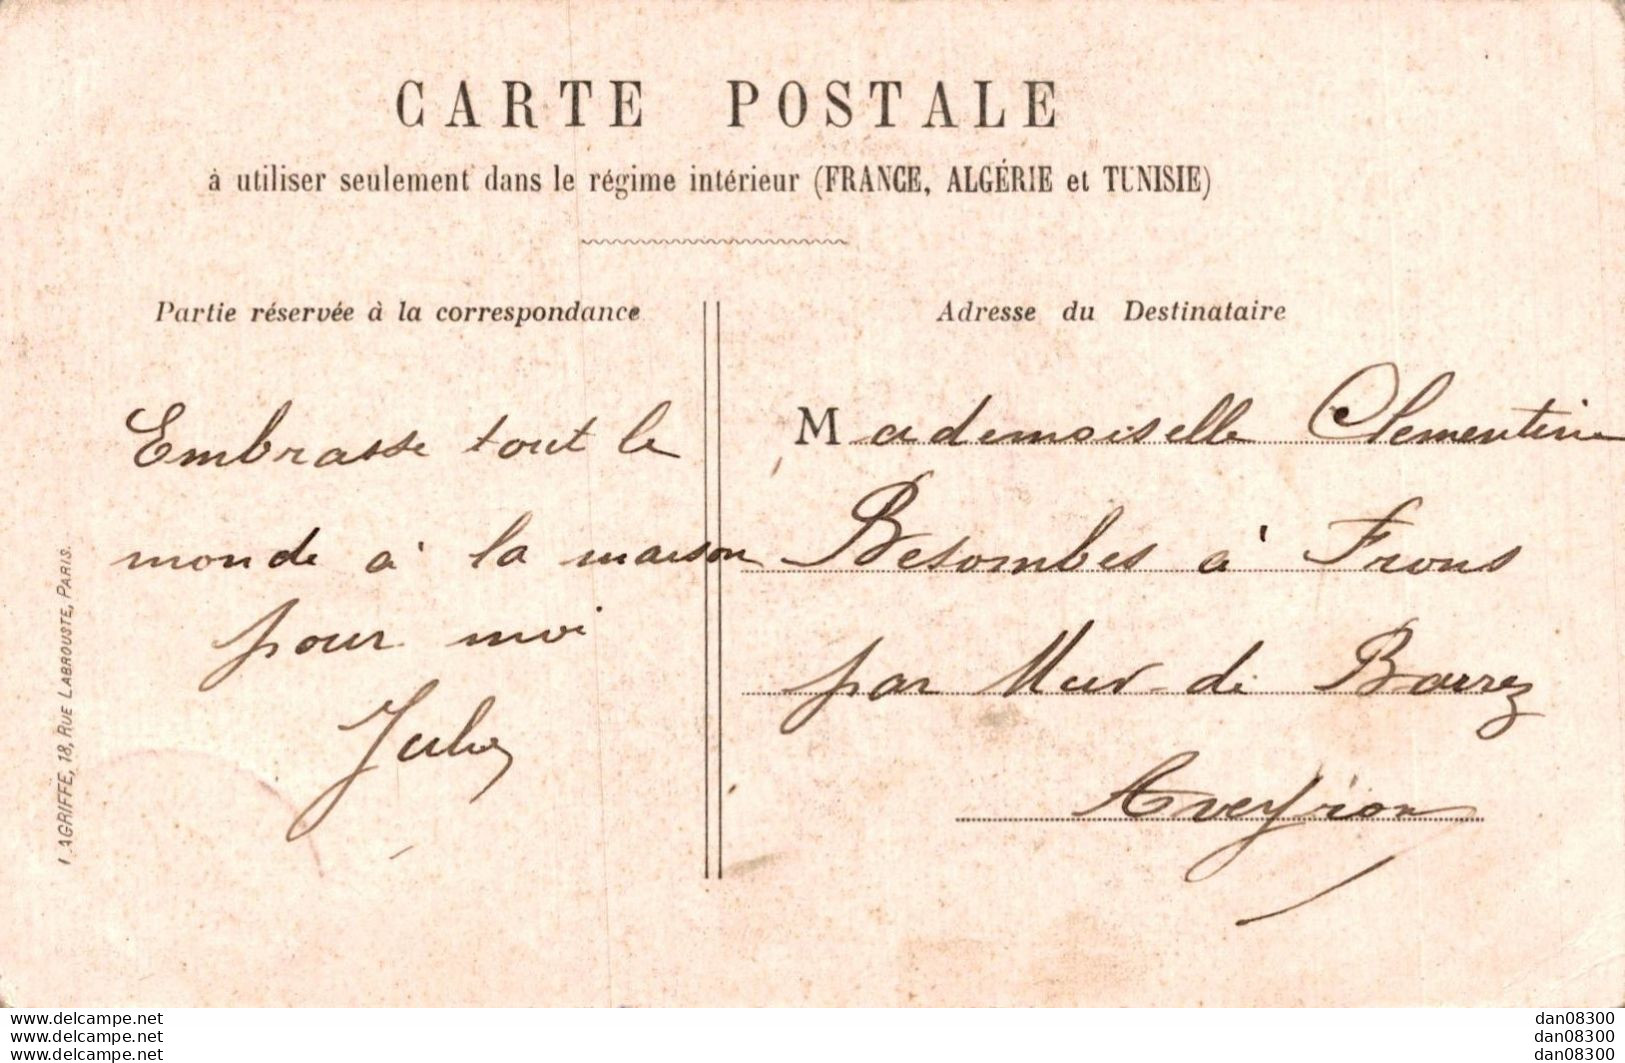 CARTE POSTALE
à utiliser seulement dans le régime intérieur (FRANCE, ALGÉRIE et TUNISIE)
Partie réservée à la correspondance
Embrasse tout le
monde à la maison
pour moi
Adresse du Destinataire
Mademoiselle Clementine
Besombes à Frons
par Mur-de Barrez
Aveyron
LAGRIFFE, 18, RUE LABROUSTE, PARIS.
www.delcampe.net
www.delcampe.net
www.delcampe.net
dan08300
dan08300
dan08300